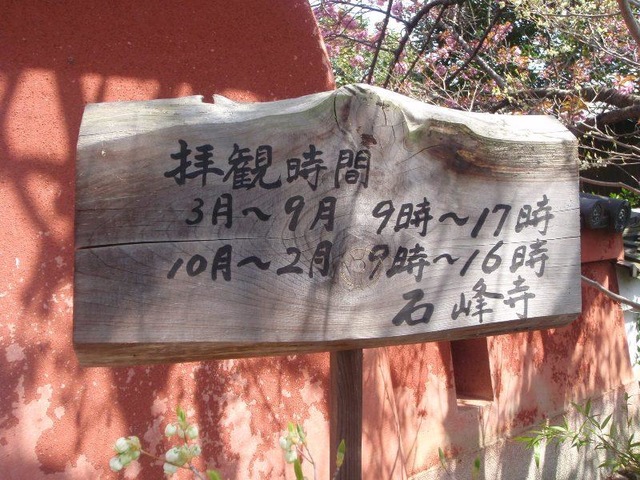 拝観時間
3月～9月 9時～17時
10月～2月 9時～16時
石峰寺